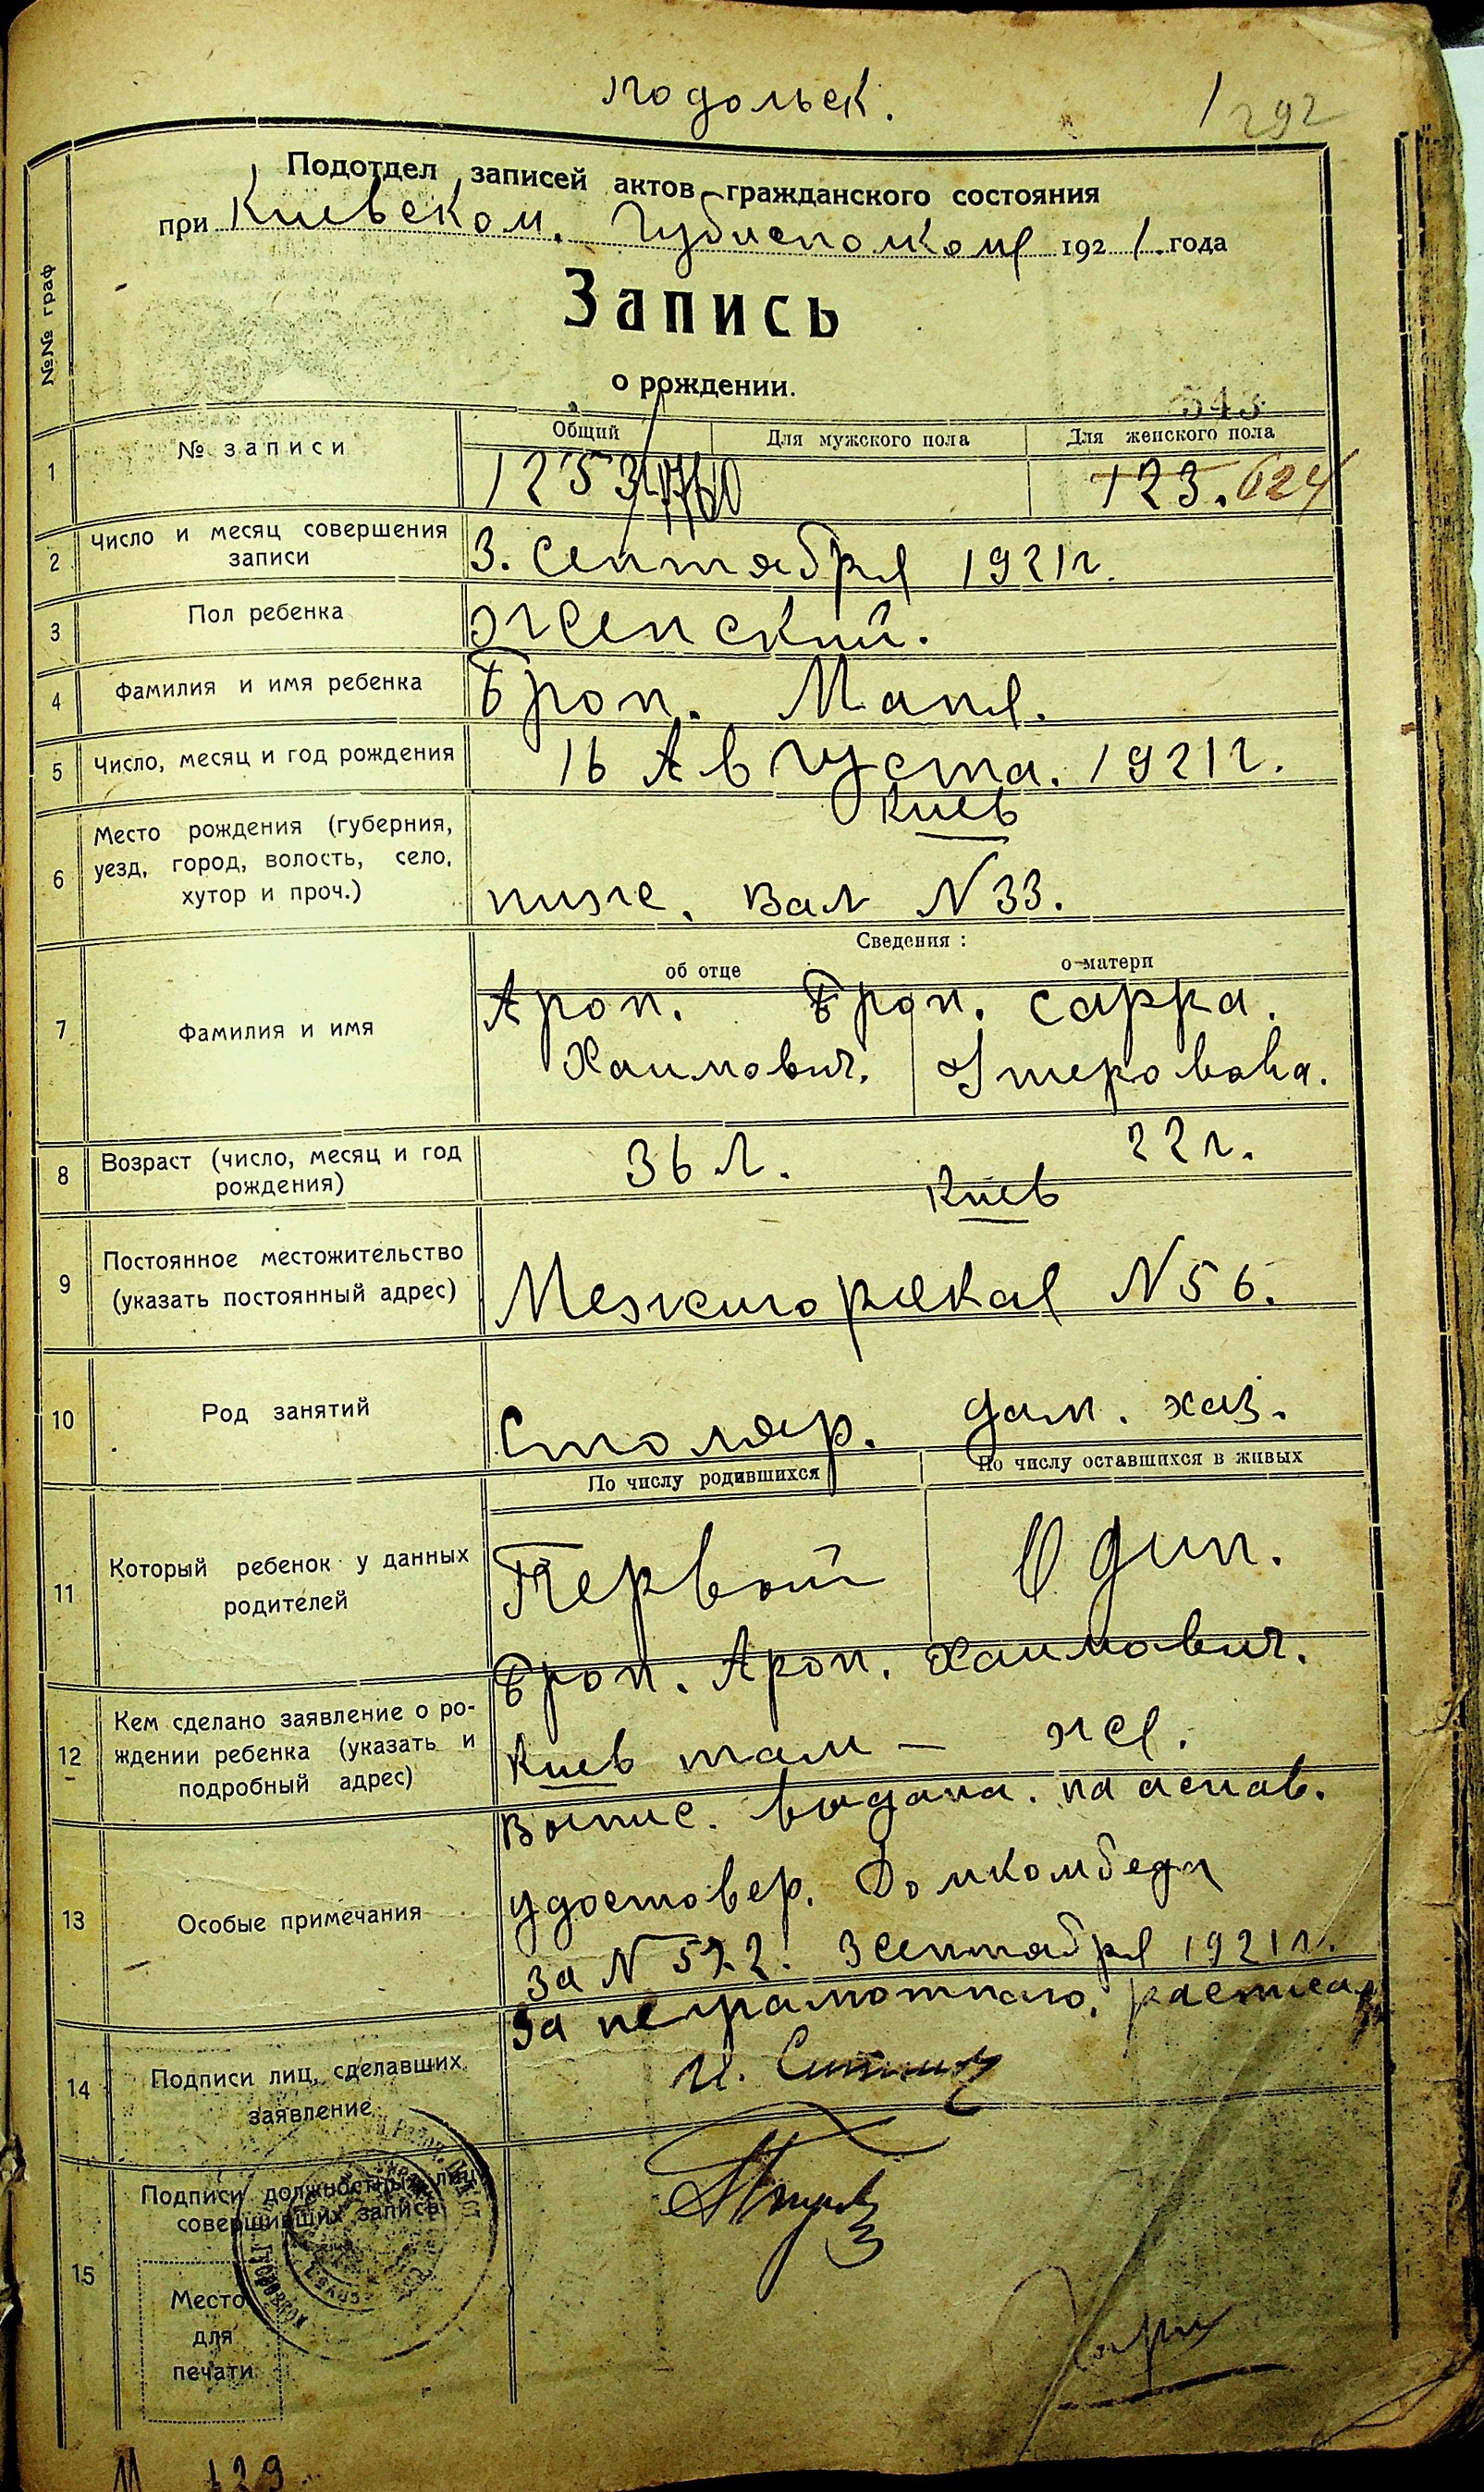 Подольск.
292
Подотдел записей актов гражданского состояния
при Киевском. Губисполкоме 1921. года
№№ граф
Запись
о рождении.
543
1 № записи Общий Для мужского пола Для женского пола
1253 123. 624
2 Число и месяц совершения записи
3. Сентября 1921 г.
3 Пол ребенка
Женский.
4 Фамилия и имя ребенка
Брон. Маня.
5 Число, месяц и год рождения
16 Августа. 1921 г.
6 Место рождения (губерния,
уезд, город, волость, село,
хутор и проч.)
Киев
ниже. Вал N 33.
Сведения:
об отце о матери
7 Фамилия и имя
Арон. Брон. Сарра.
Хаимович.
8 Возраст (число, месяц и год
рождения)
36 л. 22 г.
9 Постоянное местожительство
(указать постоянный адрес)
Киев
Межигорская N 56.
10 Род занятий
Столяр. дом. хаз.
По числу родившихся По числу оставшихся в живых
11 Который ребенок у данных
родителей
Первый Один.
12 Кем сделано заявление о ро-
ждении ребенка (указать и
подробный адрес)
Брон. Арон. Хаимович.
Киев там — же.
13 Особые примечания
Выпис. выдана. на аснав.
удостовер. Домкомбеда
за N 522. 3 Сентября 1921 г.
14 Подписи лиц, сделавших
заявление
За неграмотного. расписал
15 Подписи должностных лиц
совершивших запись
Место
для
печати
129